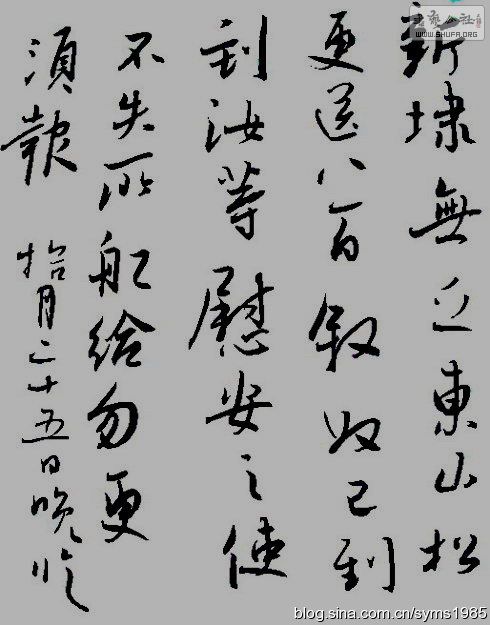 新埭無乏東山松
更送八百叙奴已到
到汝等慰安之使
不失所船給勿更
須報 拾月二十五日晚
WWW.SHUFA.ORG
blog.sina.com.cn/syms1985